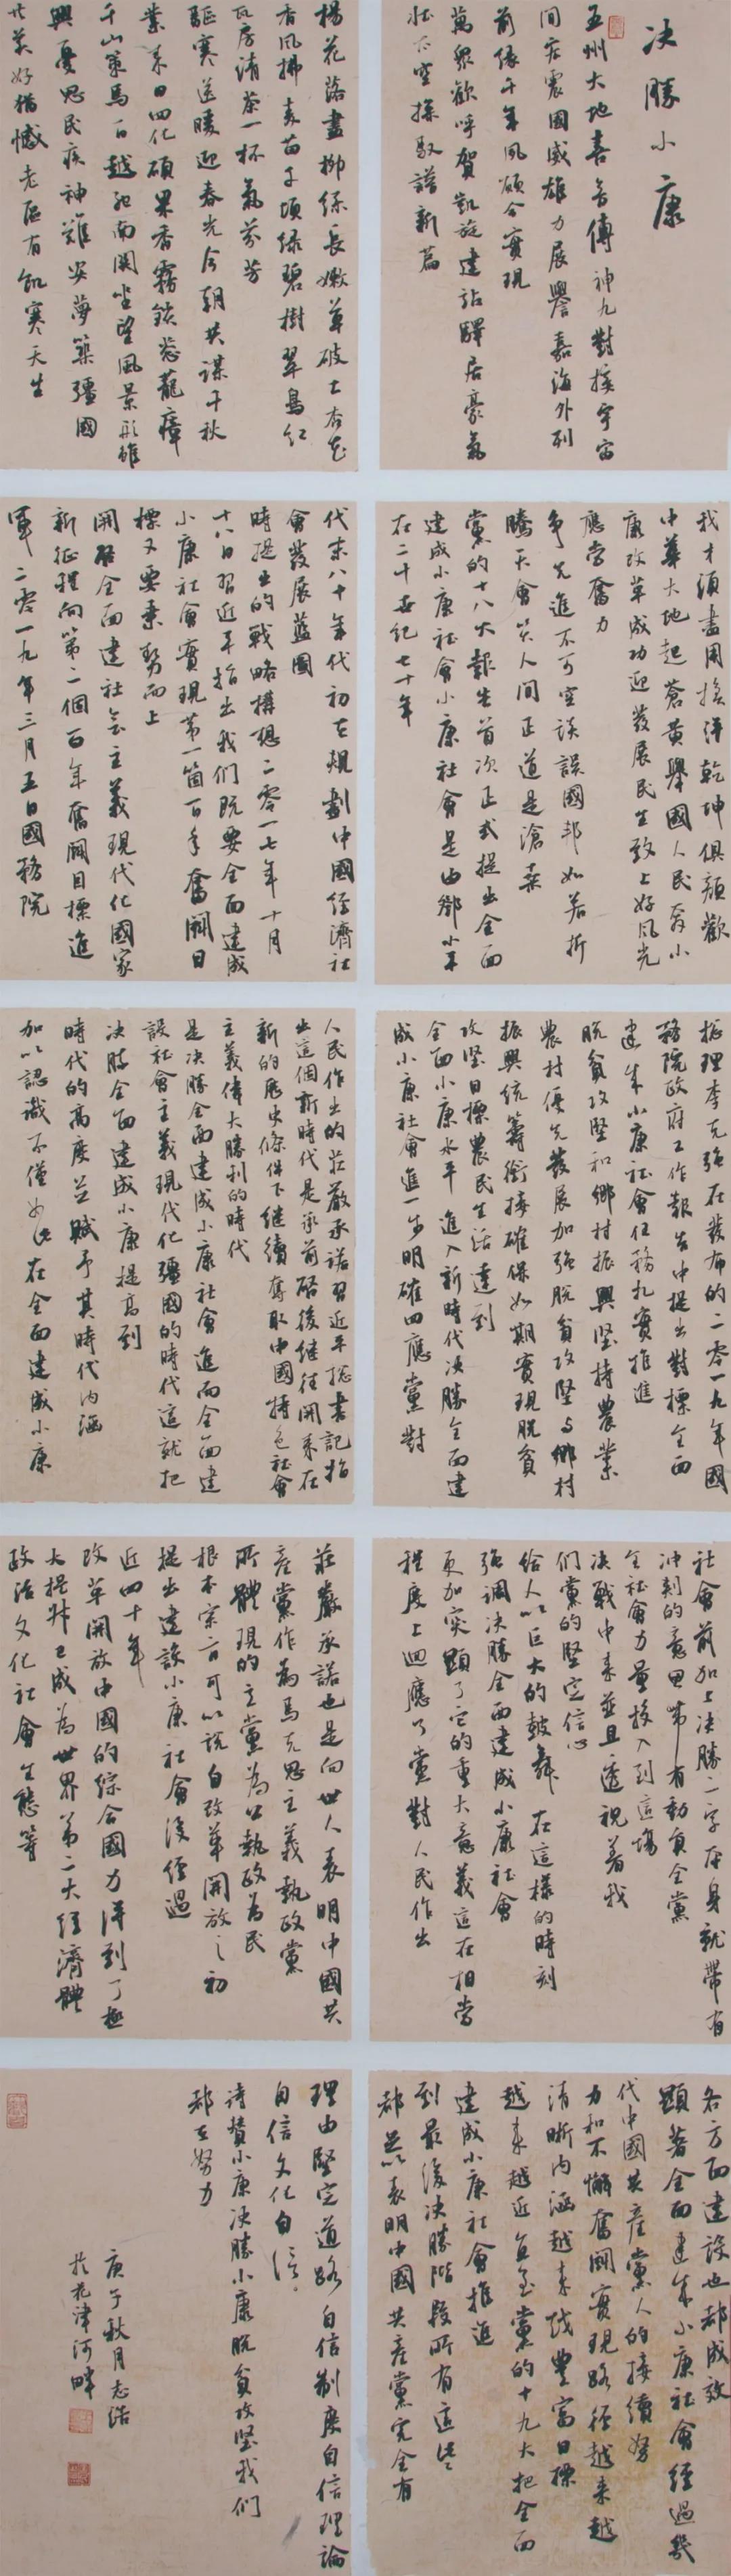 决勝小康
五州大地喜
傳神九對接宇宙
間
震國威雄力展譽嘉海外到
前
千年夙願今實現
萬眾歡呼賀凱旋建站驛居豪氣
壯
空探
譜新篇
楊花落盡柳
長嫩草破土杏花
香風拂
苗千頃綠碧樹翠鳥紅
瓦房清茶一杯氣芬芳
驅寒送暖迎春光今朝共謀千秋
業
日四化碩果香霧
千山
馬百越
南関
望風景
雖
興憂思民疾神難安夢築疆國
好猶憾老區有飢寒天生
我才須盡用換得乾坤俱顏歡
中華大地起蒼黄舉國人民
小
康改革成功迎發展民生致上好風光
應當奮力
争先進不可空談誤國邦如若折
騰天會笑人間正道是滄桑
黨的十八大報告首次正式提出全面
建成小康社會小康社會是由鄧小平
在二十世纪七十年
代末八十年代初在規劃中國经濟社
會發展藍圖
時提出的戰略構想二零一七年十月
十八日習近平指出我们既要全面建成
小康社會實現第一箇百年奮鬭目
標又要乘勢而上
開啓全面建社会主義現代化國家
新征程向第二個百年奮鬭目標進
軍二零一九年三月五日國務院
総理李克强在發布的二零一九年國
務院政府工作報告中提出對標全面
建成小康社會任務扎實推進
脱貧攻堅和鄉村振興堅持農業
農村優先發展加强脱貧攻堅与鄉村
振興统籌銜接確保如期實現脱貧
攻堅目標農民生活達到
全面小康水平進入新時代决勝全面建
成小康社會進一步明確回應黨對
人民作出的莊嚴承諾習近平総書記指
出這個新時代是承前啓後继往開来在
新的歷史條件下继續奪取中國特色社會
主義偉大勝利的時代
是决勝全面建成小康社會進而全面建
設社會主義現代化疆國的時代這就把
决勝全面建成小康提高到
時代的高度并賦予其時代内涵
加以認識不僅如此在全面建成小康
社會前加上决勝二字本身就帶有
冲刺的意思带有動員全黨
全社會力量投入到這場
决戰中来並且透視着我
們黨的堅定信心
给人以巨大的鼓舞在這樣的時刻
强調决勝全面建成小康社會
更加突顯了它的重大意義這在相當
程度上迴應了黨對人民作出
莊嚴承諾也是向世人表明中國共
産黨作為馬克思主義執政黨
所體現的立黨為公執政為民
根本宗旨可以說自改革開放之初
提出建設小康社會後经過
近四十年
改革開放中國的綜合國力得到了極
大提升已成為世界第二大经濟體
政治文化社會生態等
各方面建設也都成效
顯著全面建成小康社會经過幾
代中國共産黨人的接續努
力和不懈奮鬭實現路径越来越
清晰内涵越来越豐富目標
越来越近自
黨的十九大把全面
建成小康社會推進
到最後决勝階段所有這些
都
表明中國共産黨完全有
理由堅定道路自信制度自信理論
自信文化自信
诗賛小康决勝小康脱貧攻堅我們
都在努力
庚子秋月志浩
於花津河畔